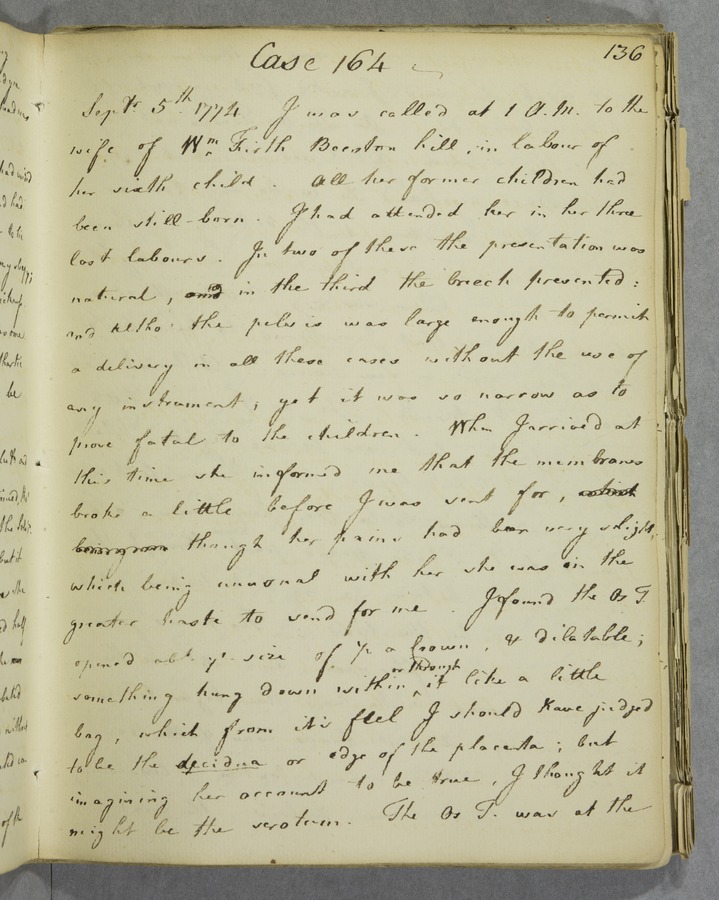 136
Case 164
Septr. 5th. 1774 I was called at 1 A.M. to the
wife of Wm Firth Beeston hill, in labour of
her sixth child. All her former children had
been still-born. I had attended her in her three
last labours. In two of these the presentation was
natural, in the third the breech presented:
and altho' the pelvis was large enough to permit
a delivery in all these cases without the use of
any instrument; yet it was so narrow as to
prove fatal to the children. When I arrived at
this time she informed me that the membranes
broke a little before I was sent for,
though her pains had been very slight;
which being unusual with her she was in the
greater haste to send for me. I found the Os T.
opened abt. ye. size of 1/2 a Crown, & dilatable;
something hung down within or through it like a little
bag, which from it's feel I should have judged
to be the decidua or edge of the placenta; but
imagining her account to be true, I thought it
might be the scrotum. The Os T. was at the